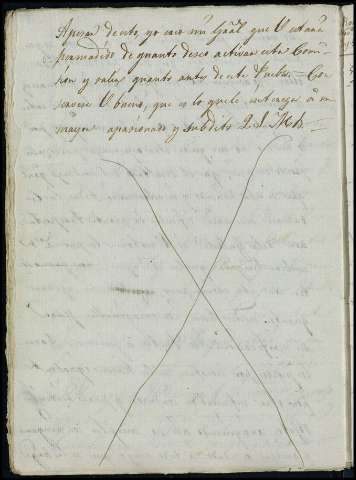 Apesar de esto, yo creo mi Gräl que V estará
persuadido de quanto deseo activar esta Comi-
sion y salir quanto antes de este Pueblo. Con-
servese V bueno, que es lo que le
mayor apasionado y subdito Q. S. M. B.